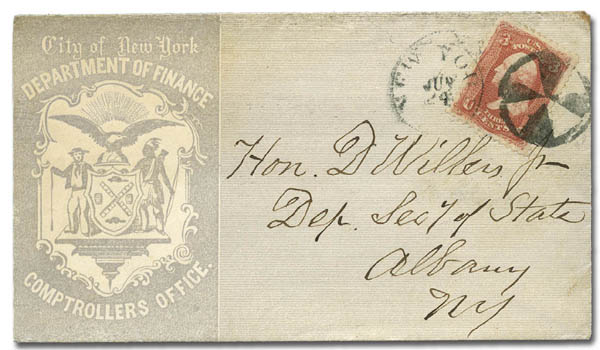 City of New York
DEPARTMENT OF FINANCE
COMPTROLLERS OFFICE.
NEW YORK
JUN
24
U.S.
POSTAGE
3
THREE
CENTS
Hon. D Willers Jr
Dep. Secy of State
Albany
NY